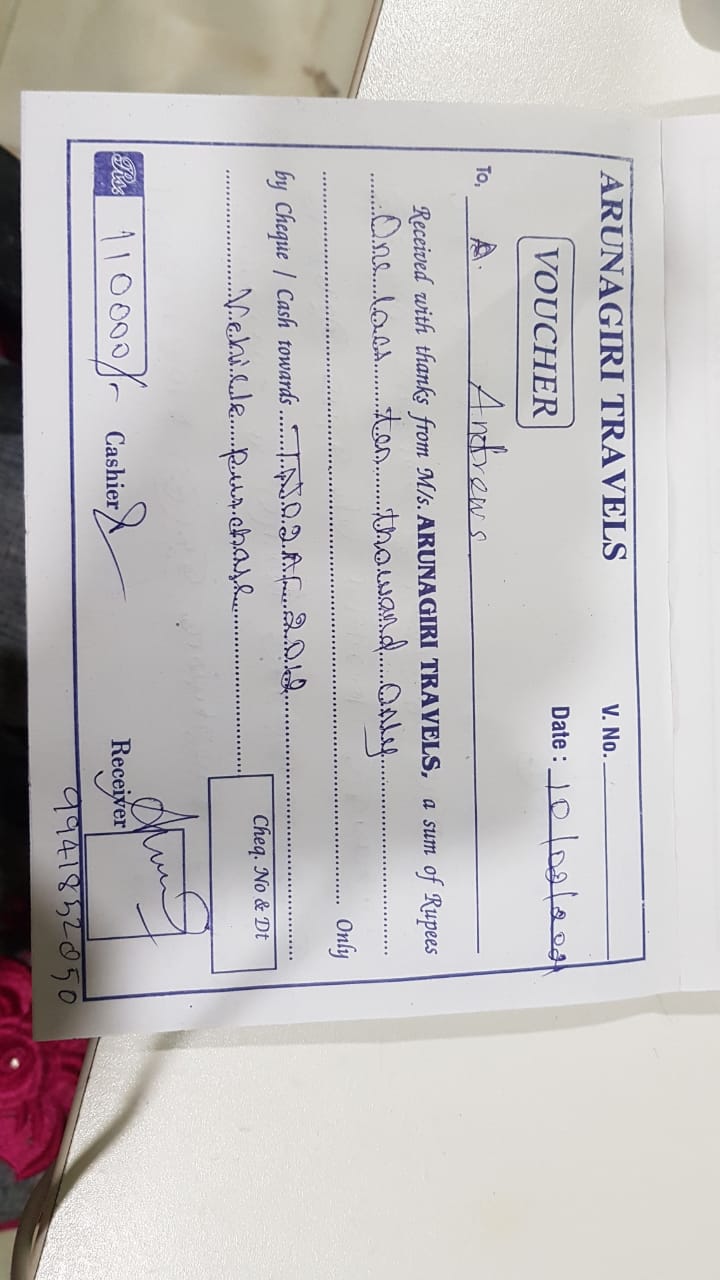 ARUNAGIRI TRAVELS
V. No.
VOUCHER
Date : 10/09/2021
To, A. Andrews
Received with thanks from M/s. ARUNAGIRI TRAVELS, a sum of Rupees
One lacs ten thousand only
Only
by Cheque / Cash towards
Vehicle purchase
Cheq. No & Dt
Rs. 110000/-
Cashier
Receiver
9941852050